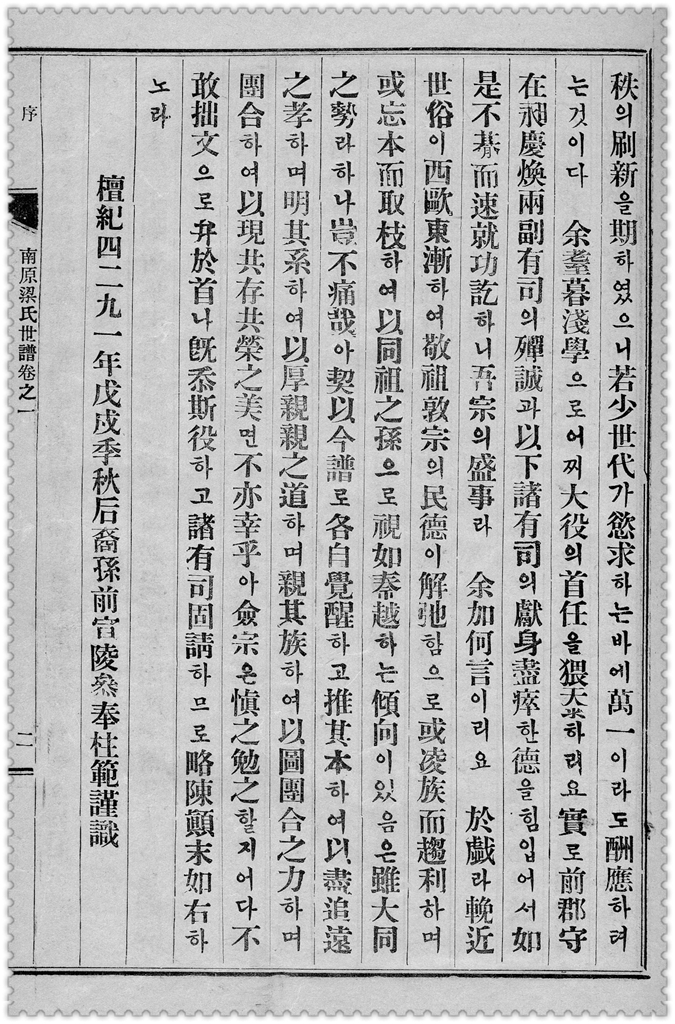 秩의刷新을期하였으니若少世代가慾求하는바에萬一이라도酬應하려
는것이다 余耋暮淺學으로어찌大役의首任을猥하리요 實로前郡守
在昶慶煥兩副有司의殫誠과以下諸有司의獻身盡瘁한德을힘입어서如
是不朞而速就功訖하니吾宗의盛事라 余加何言이리요 於戱라輓近
世俗이西歐東漸하여敬祖敦宗의民德이解弛힘으로或凌族而趨利하며
或忘本而取枝하여以同祖之孫으로視如秦越하는傾向이있음은雖大同
之勢라하나豈不痛哉아契以今譜로各自覺醒하고推其本하여以盡追遠
之孝하며明其系하여以厚親親之道하며親其族하여以圖團合之力하며
團合하여以現共存共榮之美면不亦幸乎아僉宗은愼之勉之할지어다不
敢拙文으로弁於首나旣忝斯役하고諸有司固請하므로略陳顚末如右하
노라
檀紀四二九一年戊戌季秋后裔孫前官陵參奉柱範謹識
序
南原梁氏世譜卷之一
二